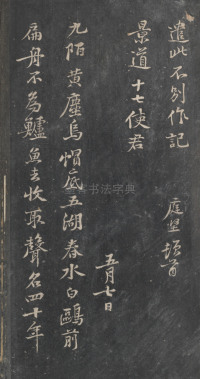 遣此不别作記
庭堅頓首
景道十七使君
五月七日
九陌黄塵烏帽底五湖春水白鷗前
扁舟不為鱸魚去收取聲名四十年